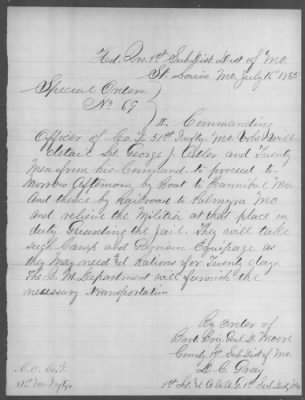 Hd. Qrs 1st Sub Dist Dist of Mo
St Louis Mo, July 15 1865
Special Orders
No 69
II, Commanding
Officer of Co. 51st Infty. Mo. Vols Will
detail Lt. George J. and Twenty
Men from his Command to proceed to
morrow afternoon by Boat to Hannibal Mo.
and thence by Railroad to Palmyra Mo.
and relieve the Militia at that place in
duty Guarding the jail. They will take
such Camp and Equipage as
they may need and Rations for Twenty days.
The Q. M. Department will furnish the
necessary transportation
By order of
Bvt. Brig. Genl D. Moore
Comdg 1st Sub Dist of Mo.
D. C.
1st Lt & A.A.A.G. 1st Sub Dist Mo
C.O. Co. I.
51st Mo. Infty.